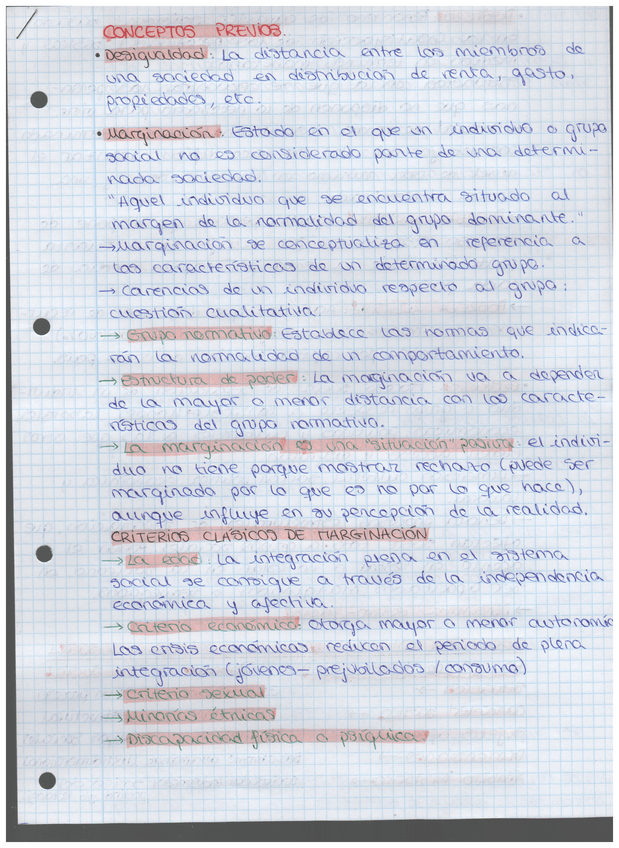 CONCEPTOS PREVIOS.
• Desigualdad: La distancia entre los miembros de
una sociedad en distribución de renta, gasto,
propiedades, etc.
• Marginación: Estado en el que un individuo o grupo
social no es considerado parte de una determi-
nada sociedad.
"Aquel individuo que se encuentra situado al
margen de la normalidad del grupo dominante."
→ Marginación se conceptualiza en referencia a
las características de un determinado grupo.
→ Carencias de un individuo respecto al grupo:
cuestión cualitativa.
→ Grupo normativo: Establece las normas que indica-
rán la normalidad de un comportamiento.
→ Estructura de poder: La marginación va a depender
de la mayor o menor distancia con las caracte-
rísticas del grupo normativo.
→ La marginación es una "situación" pasiva: el indivi-
duo no tiene porque mostrar rechazo (puede ser
marginado por lo que es no por lo que hace),
aunque influye en su percepción de la realidad.
CRITERIOS CLASICOS DE MARGINACIÓN
→ La edad: La integración plena en el sistema
social se consigue a través de la independencia
económica y afectiva.
→ Criterio económico: Otorga mayor o menor autonomía
Las crisis económicas reducen el periodo de plena
integración (jóvenes – prejubilados / consumo)
→ Criterio sexual
→ Minorías étnicas
→ Discapacidad física o psíquica